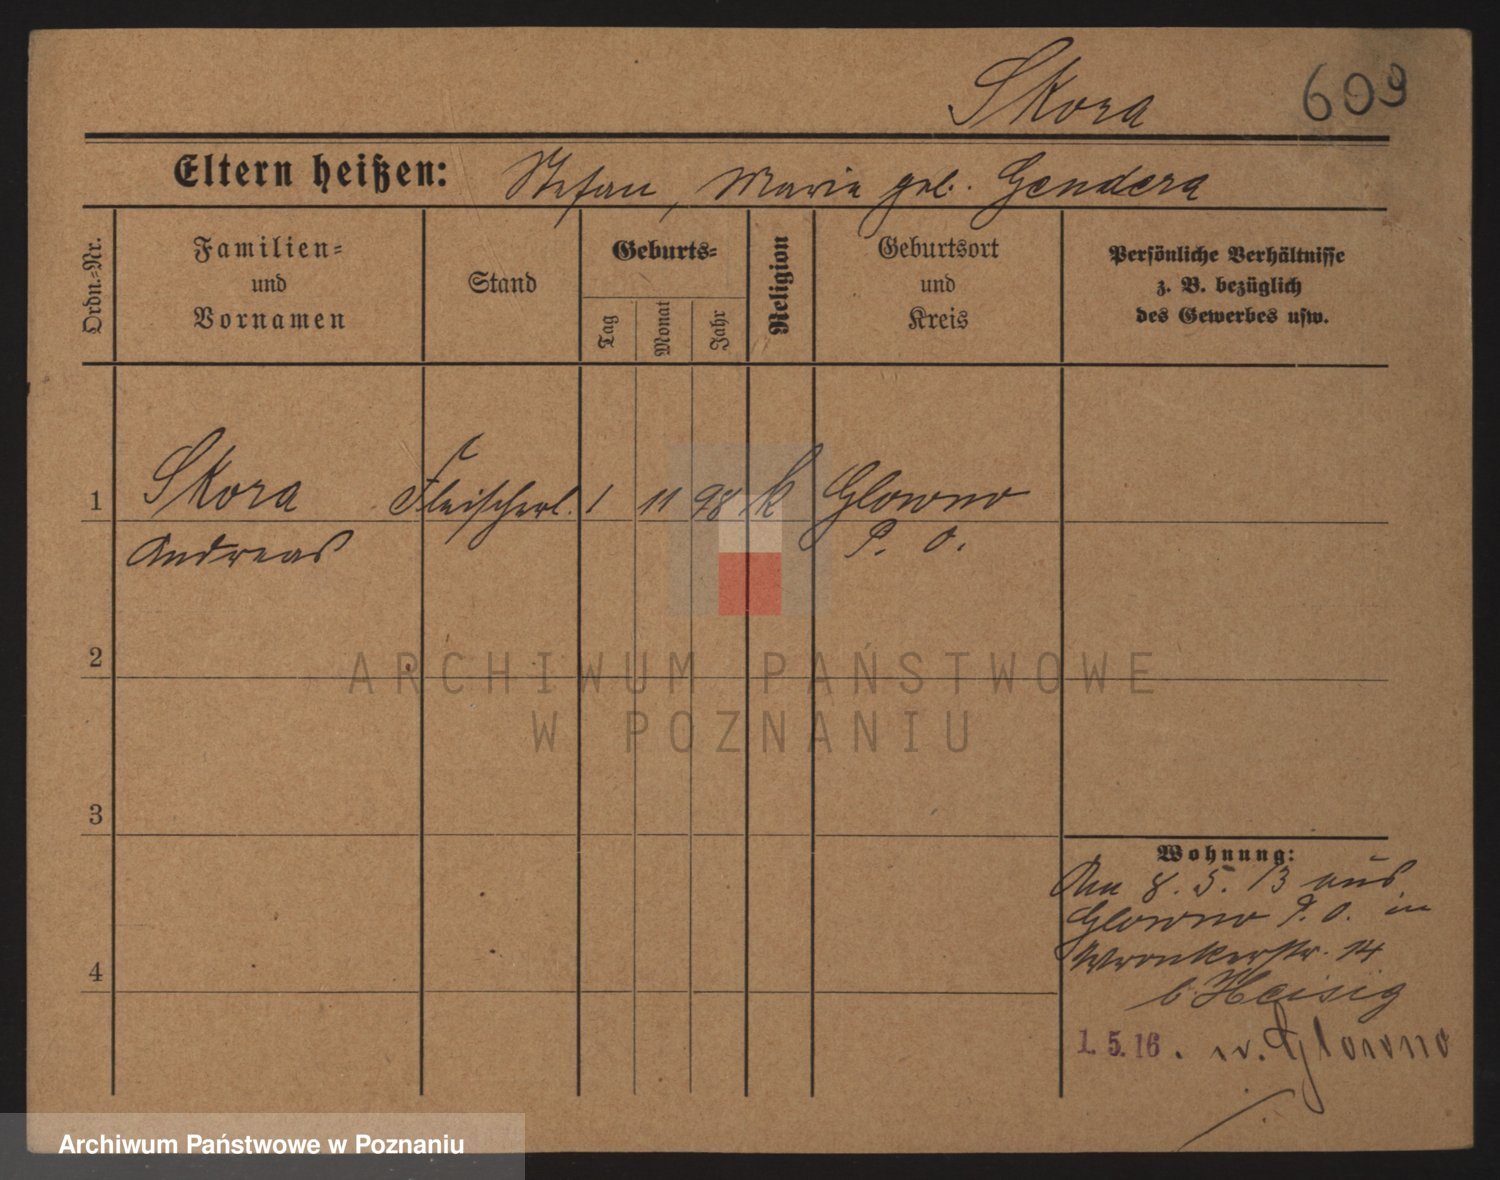 Skora
609
Eltern heißen: Stefan, Maria geb. Gendera
Ordn.-Nr.
Familien-
und
Vornamen
Stand
Geburts-
Tag
Monat
Jahr
Religion
Geburtsort
und
Kreis
Persönliche Verhältnisse
z. B. bezüglich
des Gewerbes usw.
1 Skora Fleischerl. 1 11 98 k Glowno
Andreas P. O.
2
3
4
Wohnung:
Am 8. 5. 13 aus
Glowno P. O. in
Wronkerstr. 14
b. Heisig
1. 5. 16. n. Glowno
ARCHIWUM PAŃSTWOWE
W POZNANIU
Archiwum Państwowe w Poznaniu